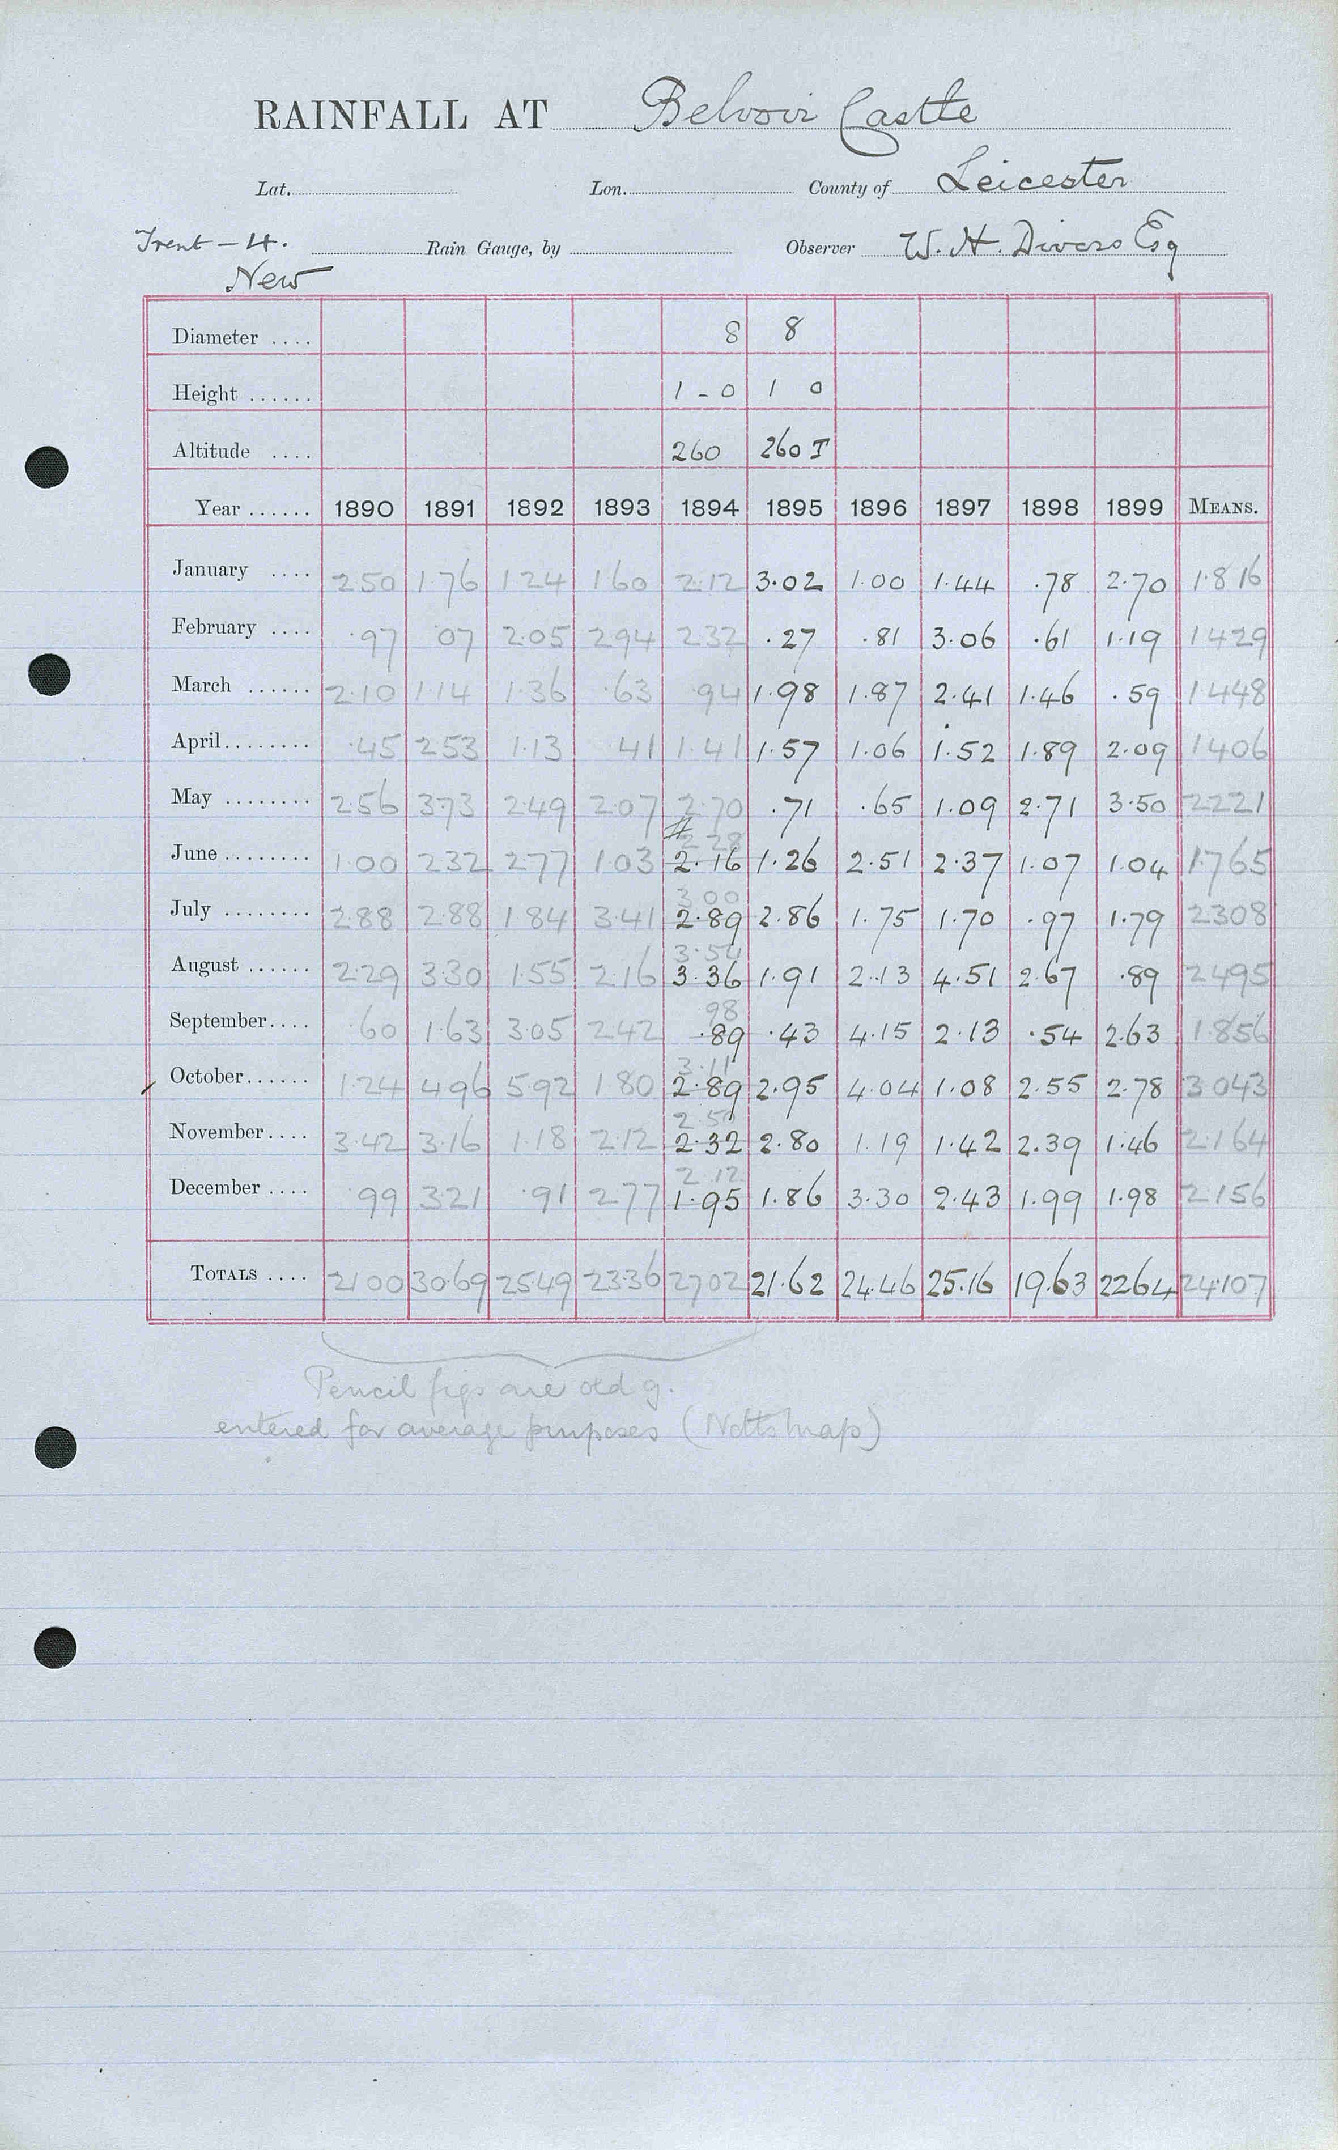 RAINFALL AT Belvoir Castle
Lat. Lon. County of Leicester
Trent - 4. Rain Gauge, by Observer W. H. Divers Esq
New
Diameter .... 8 8
Height ...... 1 - 0 1 0
Altitude .... 260 260 T
Year ...... 1890 1891 1892 1893 1894 1895 1896 1897 1898 1899 MEANS.
January .... 2.50 1.76 1.24 1.60 2.12 3.02 1.00 1.44 .78 2.70 1.816
February .... .97 .07 2.05 2.94 2.32 .27 .81 3.06 .61 1.19 1.429
March ...... 2.10 1.14 1.36 .63 .94 1.98 1.87 2.41 1.46 .59 1.448
April........ .45 2.53 1.13 .41 1.41 1.57 1.06 1.52 1.89 2.09 1.406
May ........ 2.56 3.73 2.49 2.07 2.70 .71 .65 1.09 2.71 3.50 2.221
# 2.28
June ........ 1.00 2.32 2.77 1.03 2.16 1.26 2.51 2.37 1.07 1.04 1.765
3.00
July ........ 2.88 2.88 1.84 3.41 2.89 2.86 1.75 1.70 .97 1.79 2.308
3.54
August ...... 2.29 3.30 1.55 2.16 3.36 1.91 2.13 4.51 2.67 .89 2.495
.98
September.... .60 1.63 3.05 2.42 .89 .43 4.15 2.13 .54 2.63 1.856
3.11
October...... 1.24 4.96 5.92 1.80 2.89 2.95 4.04 1.08 2.55 2.78 3.043
2.50
November.... 3.42 3.16 1.18 2.12 2.32 2.80 1.19 1.42 2.39 1.46 2.164
2.12
December .... .99 3.21 .91 2.77 1.95 1.86 3.30 2.43 1.99 1.98 2.156
TOTALS .... 21.00 30.69 25.49 23.36 27.02 21.62 24.46 25.16 19.63 22.64 24.107
Pencil figs are old g.
entered for average purposes (Notts map)